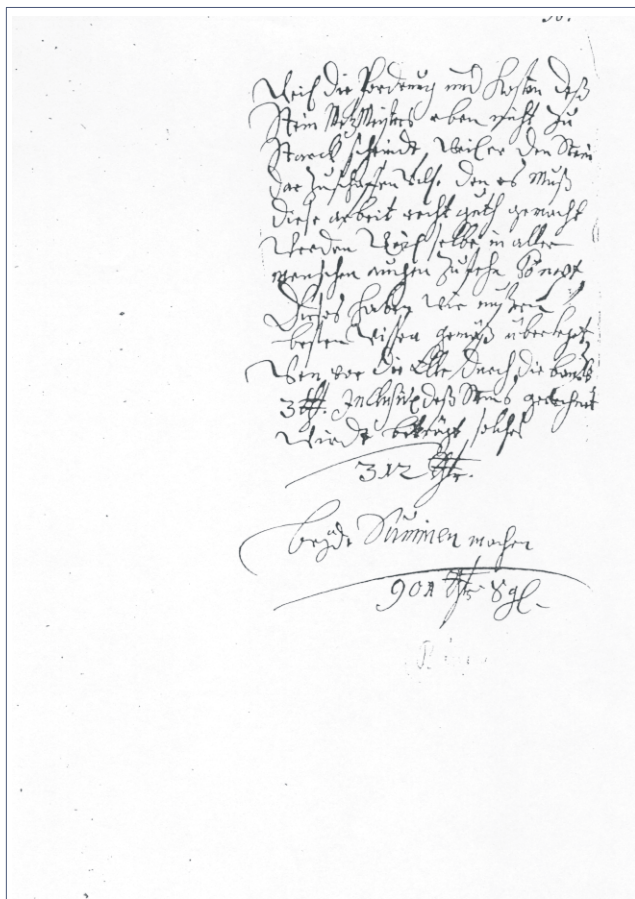 die forderung und Kosten deß
Stein Metz Meisters eben nicht zu
starck scheindt, weil er den Stein
dar zu schaffen den es muß
diese arbeit recht guth gemacht
werden selbe in aller
menschen augen zu sehn
Dieses haben wir unsern
besten wisen gemäß überlegt
Wen vor die Elle durch die banck
3 thl. Inclusive deß Steins gerechnet
wirdt beträgt solches
312 thlr.
beyde Summen machen
901 thlr 8 gl.